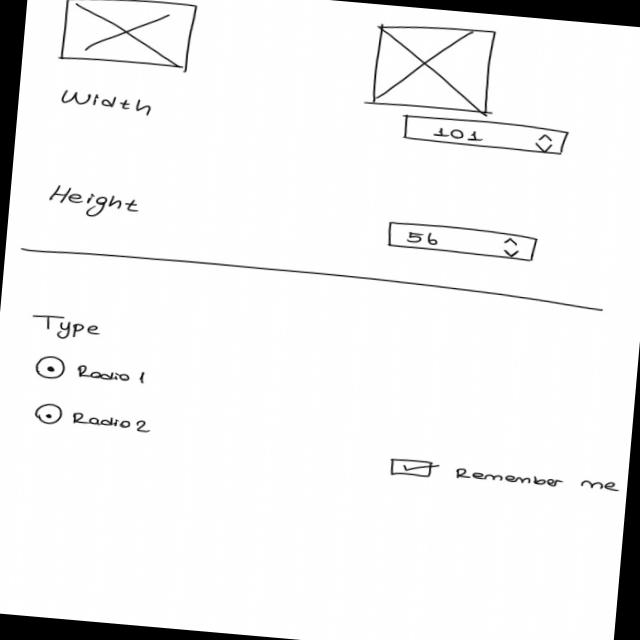 Width
101
Height
56
Type
Radio 1
Radio 2
Remember me